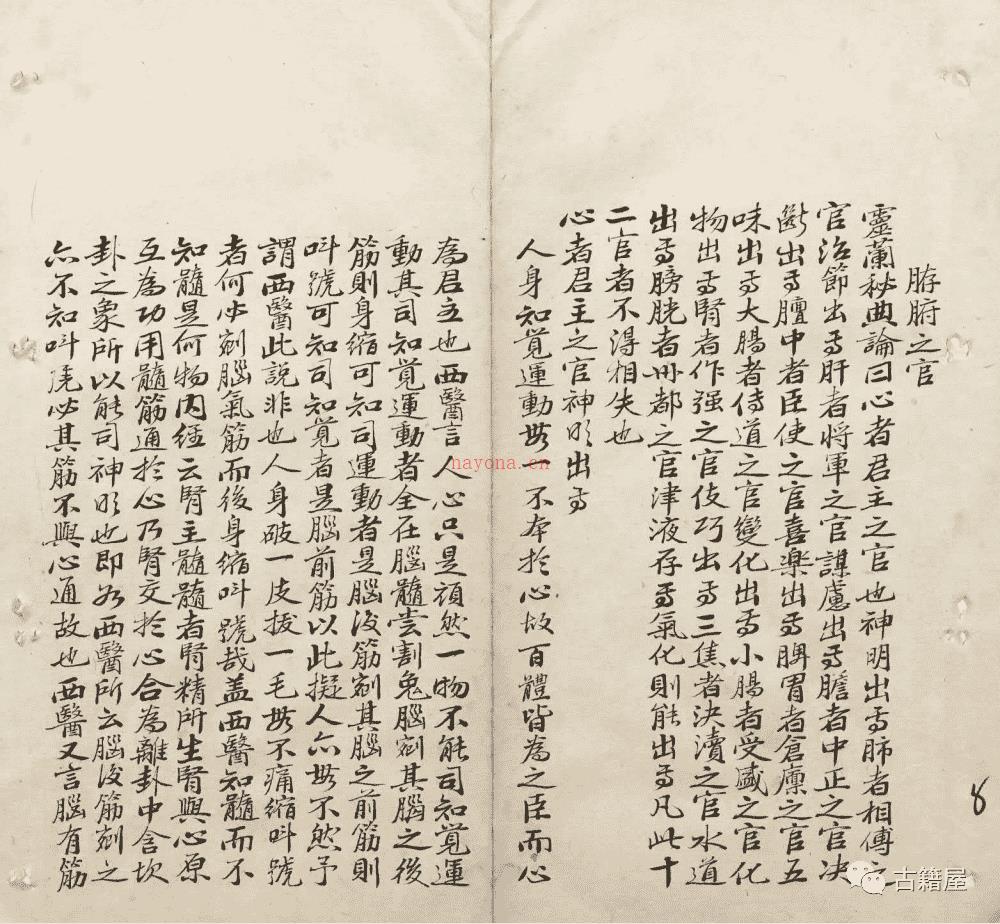 脏腑之官
靈蘭秘典論曰心者君主之官也神明出焉肺者相傅之
官治節出焉肝者將軍之官謀慮出焉膽者中正之官決
斷出焉膻中者臣使之官喜樂出焉脾胃者倉廩之官五
味出焉大腸者傳道之官變化出焉小腸者受盛之官化
物出焉腎者作强之官伎巧出焉三焦者決瀆之官水道
出焉膀胱者州都之官津液存焉氣化則能出焉凡此十
二官者不得相失也
心者君主之官神明出焉
人身知覺運動無一不本於心故百體皆為之臣而心
為君主也西醫言人心只是頑然一物不能司知覺運
動其司知覺運動者全在腦髓嘗割兔腦剜其腦之後
筋則身縮可知司運動者是腦後筋剜其腦之前筋則
叫號可知司知覺者是腦前筋以此擬人亦無不然予
謂西醫此說非也人身破一皮拔一毛無不痛縮叫號
者何必剜腦氣筋而後身縮叫號哉盖西醫知髓而不
知髓是何物內經云腎主髓髓者腎精所生腎與心原
互為功用髓筋通於心乃腎交於心合為離卦中含坎
卦之象所以能司神明也即如西醫所云腦後筋剜之
亦不知叫號必其筋不與心通故也西醫又言腦有筋
8
hayona.cn
古籍屋